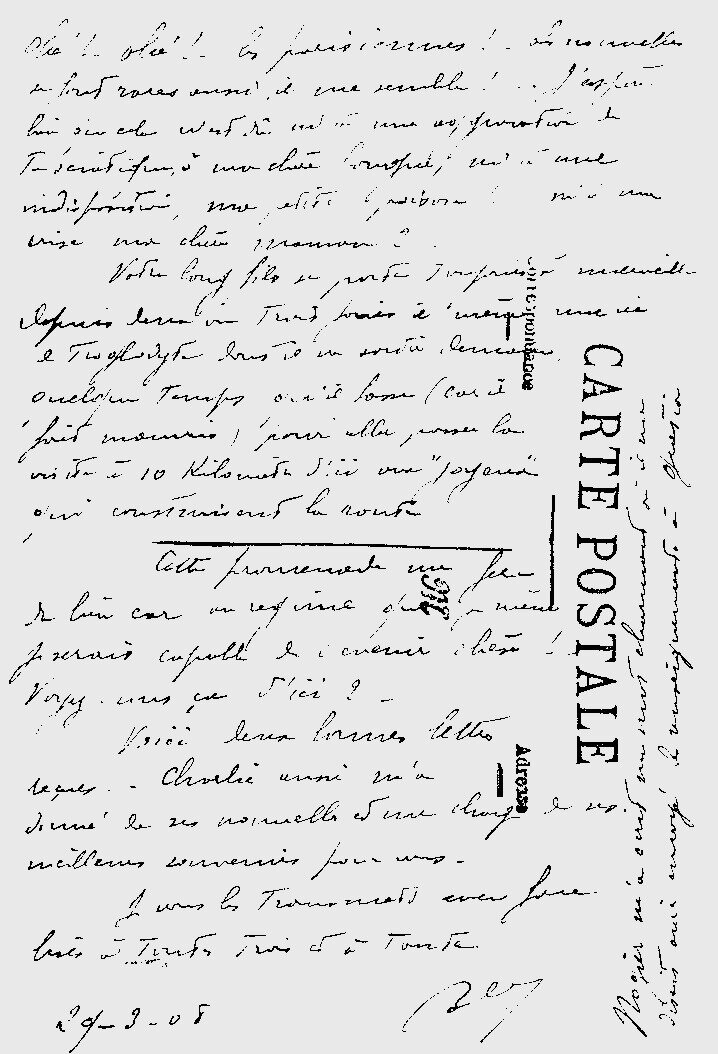 Ohé ! ohé ! les parisiennes ! Les nouvelles
se font rares aussi, il me semble ! .. J'espère
bien que cela n'est dû ni à une aggravation de
ta sciatique, ma chère ni à une
indisposition, ma petite ! ni à une
crise ma chère maman ?
Votre long fils se porte toujours à merveille
depuis deux ou trois jours il mène une vie
de Troglodyte dont il va sortir demain
quelque temps qu'il fasse (car il
fait mauvais) pour aller passer la
visite à 10 Kilomètres d'ici aux "Joyeux"
qui construisent la route
Cette promenade me fera
du bien car au régime que je mène
je serais capable de devenir obèse !
Voyez-vous ça d'ici ? -
Voici deux bonnes lettres
reçues. - Charlie aussi m'a
donné de ses nouvelles et me charge de ses
meilleurs souvenirs pour vous -
Je vous les transmets avec gros
baisers à toutes trois et à Tante
29-3-08
CARTE POSTALE
Correspondance
Adresse
m'a écrit un mot charmant où il me
disait avoir envoyé le renseignement à